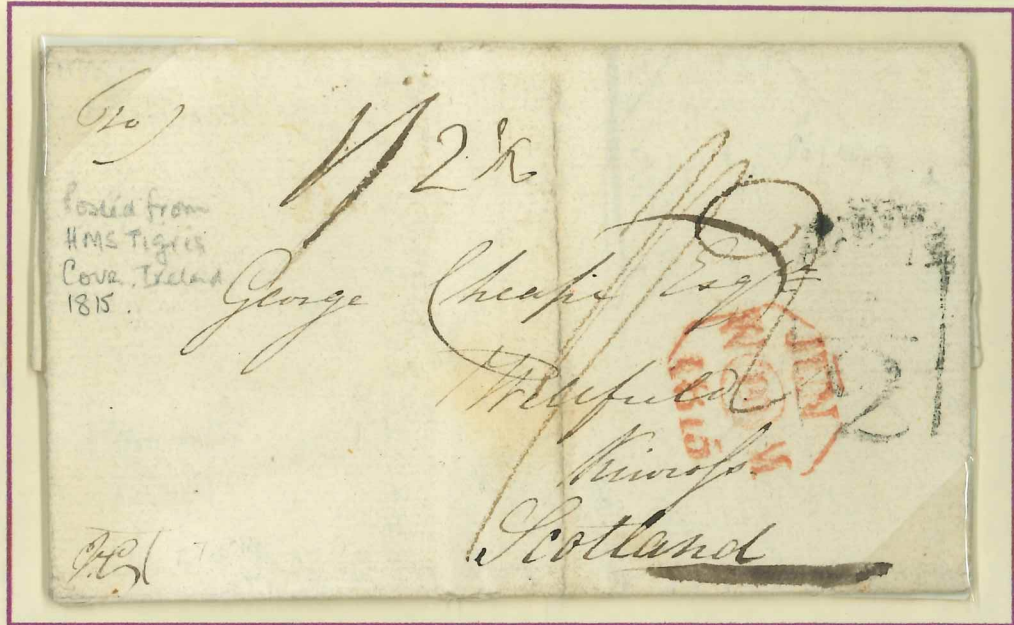 Posted from
HMS Tigris
Cove. Ireland
1815.
1/2½
George Cheape Esqr
Wellfield
Kinross
Scotland
JUN
1815